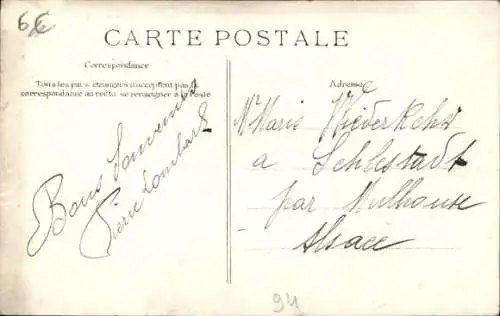 6€
CARTE POSTALE
Correspondance
Tous les pays étrangers n'acceptent pas la
correspondance au recto, se renseigner à la Poste
Bons Souvenirs
Pierre Lombard
Adresse
Mr Maris Wiederkehr
a Schlestadt
par Mulhouse
Alsace
94